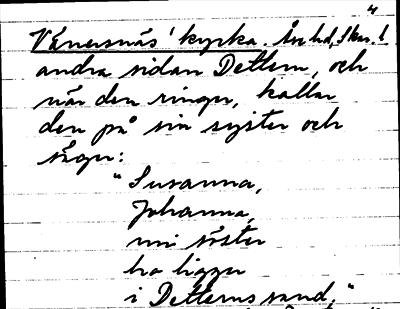 4
Vänersnäs' kyrka, Ån hd, Skar. l.
andra sidan Dettern, och
när den ringer, kallar
den på sin syster och
säger:
"Susanna,
Johanna,
min söster
ho ligger
i Detterns sand,"